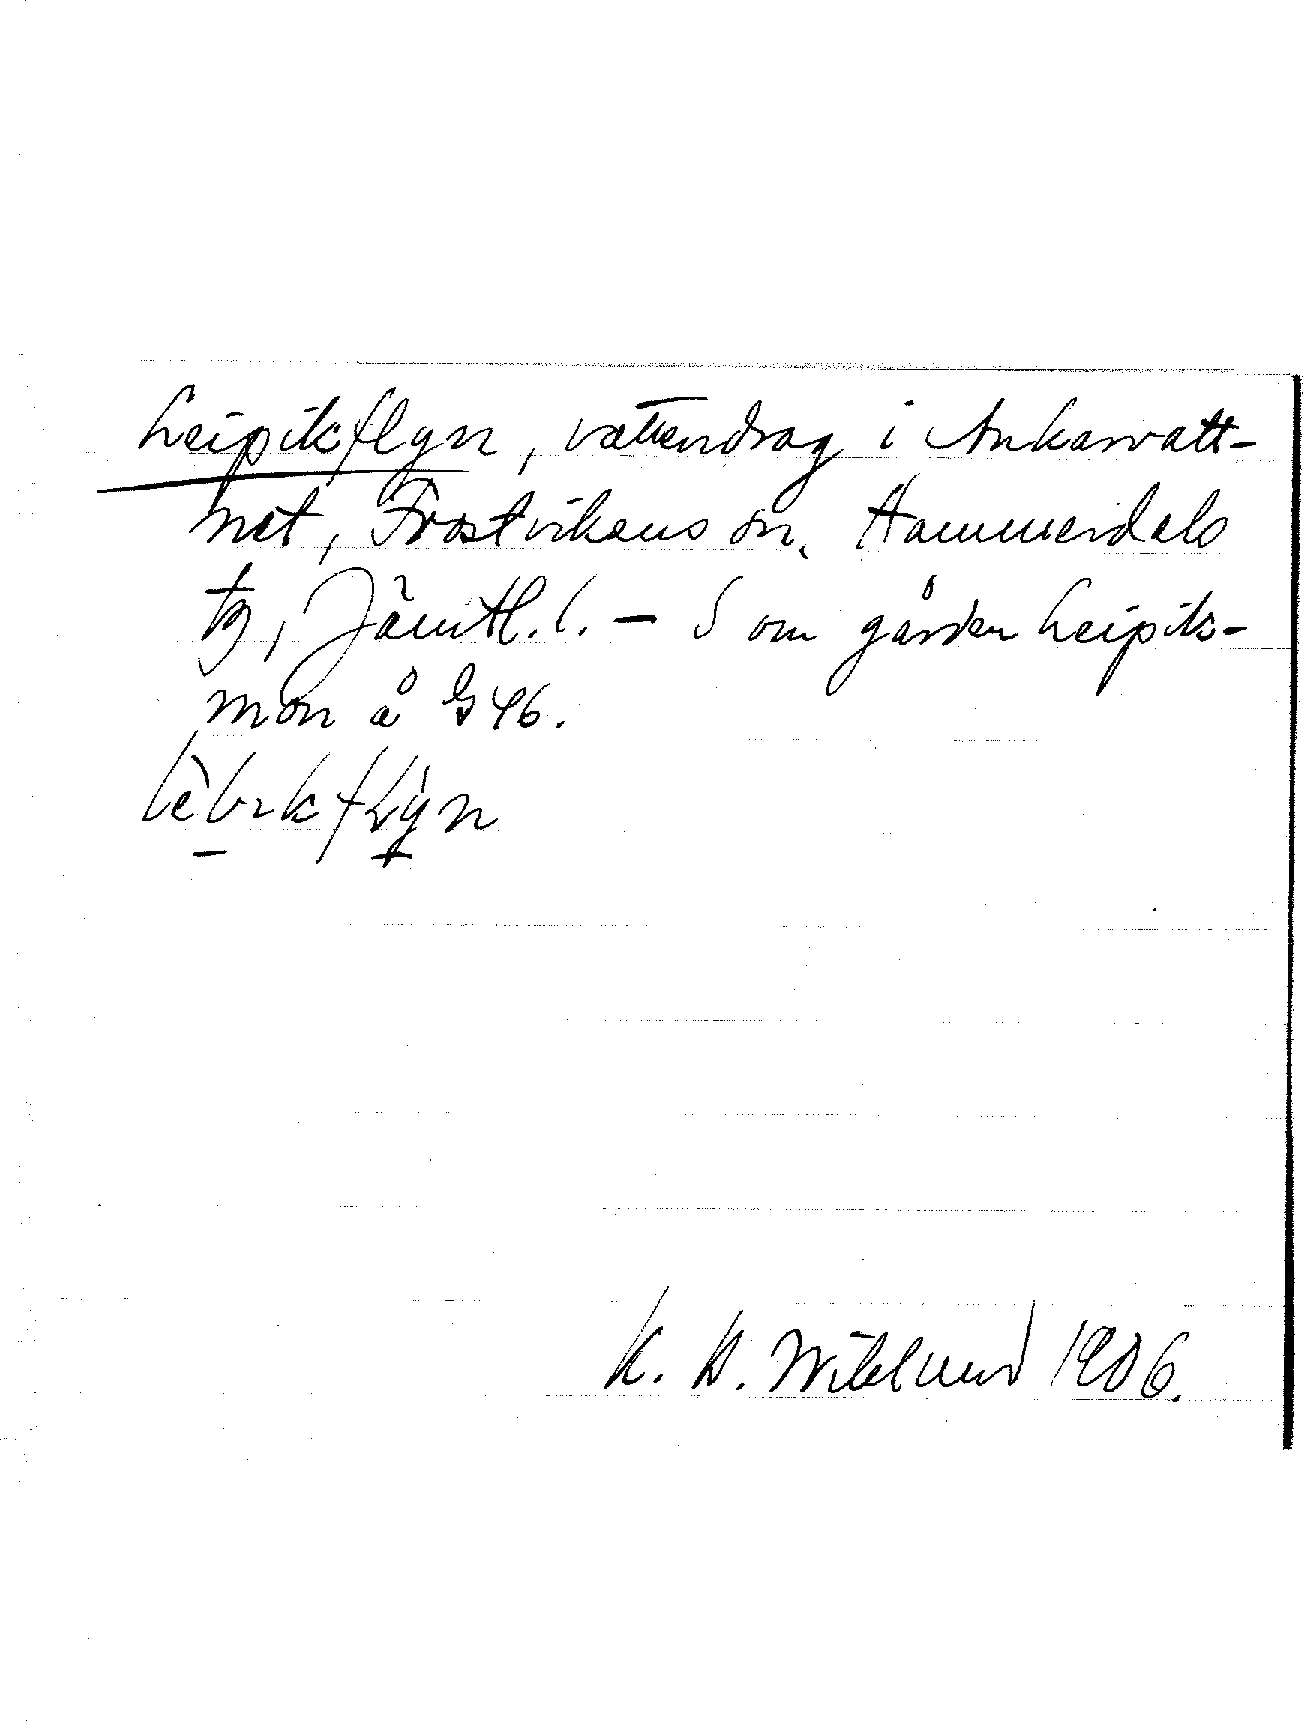 Leipikflyn, vattendrag i Ankarvatt-
net, Frostvikens sn, Hammerdals
tg, Jämtl. l. – S om gården Leipiks-
mon å G 46.
K. B. Wiklund 1906.